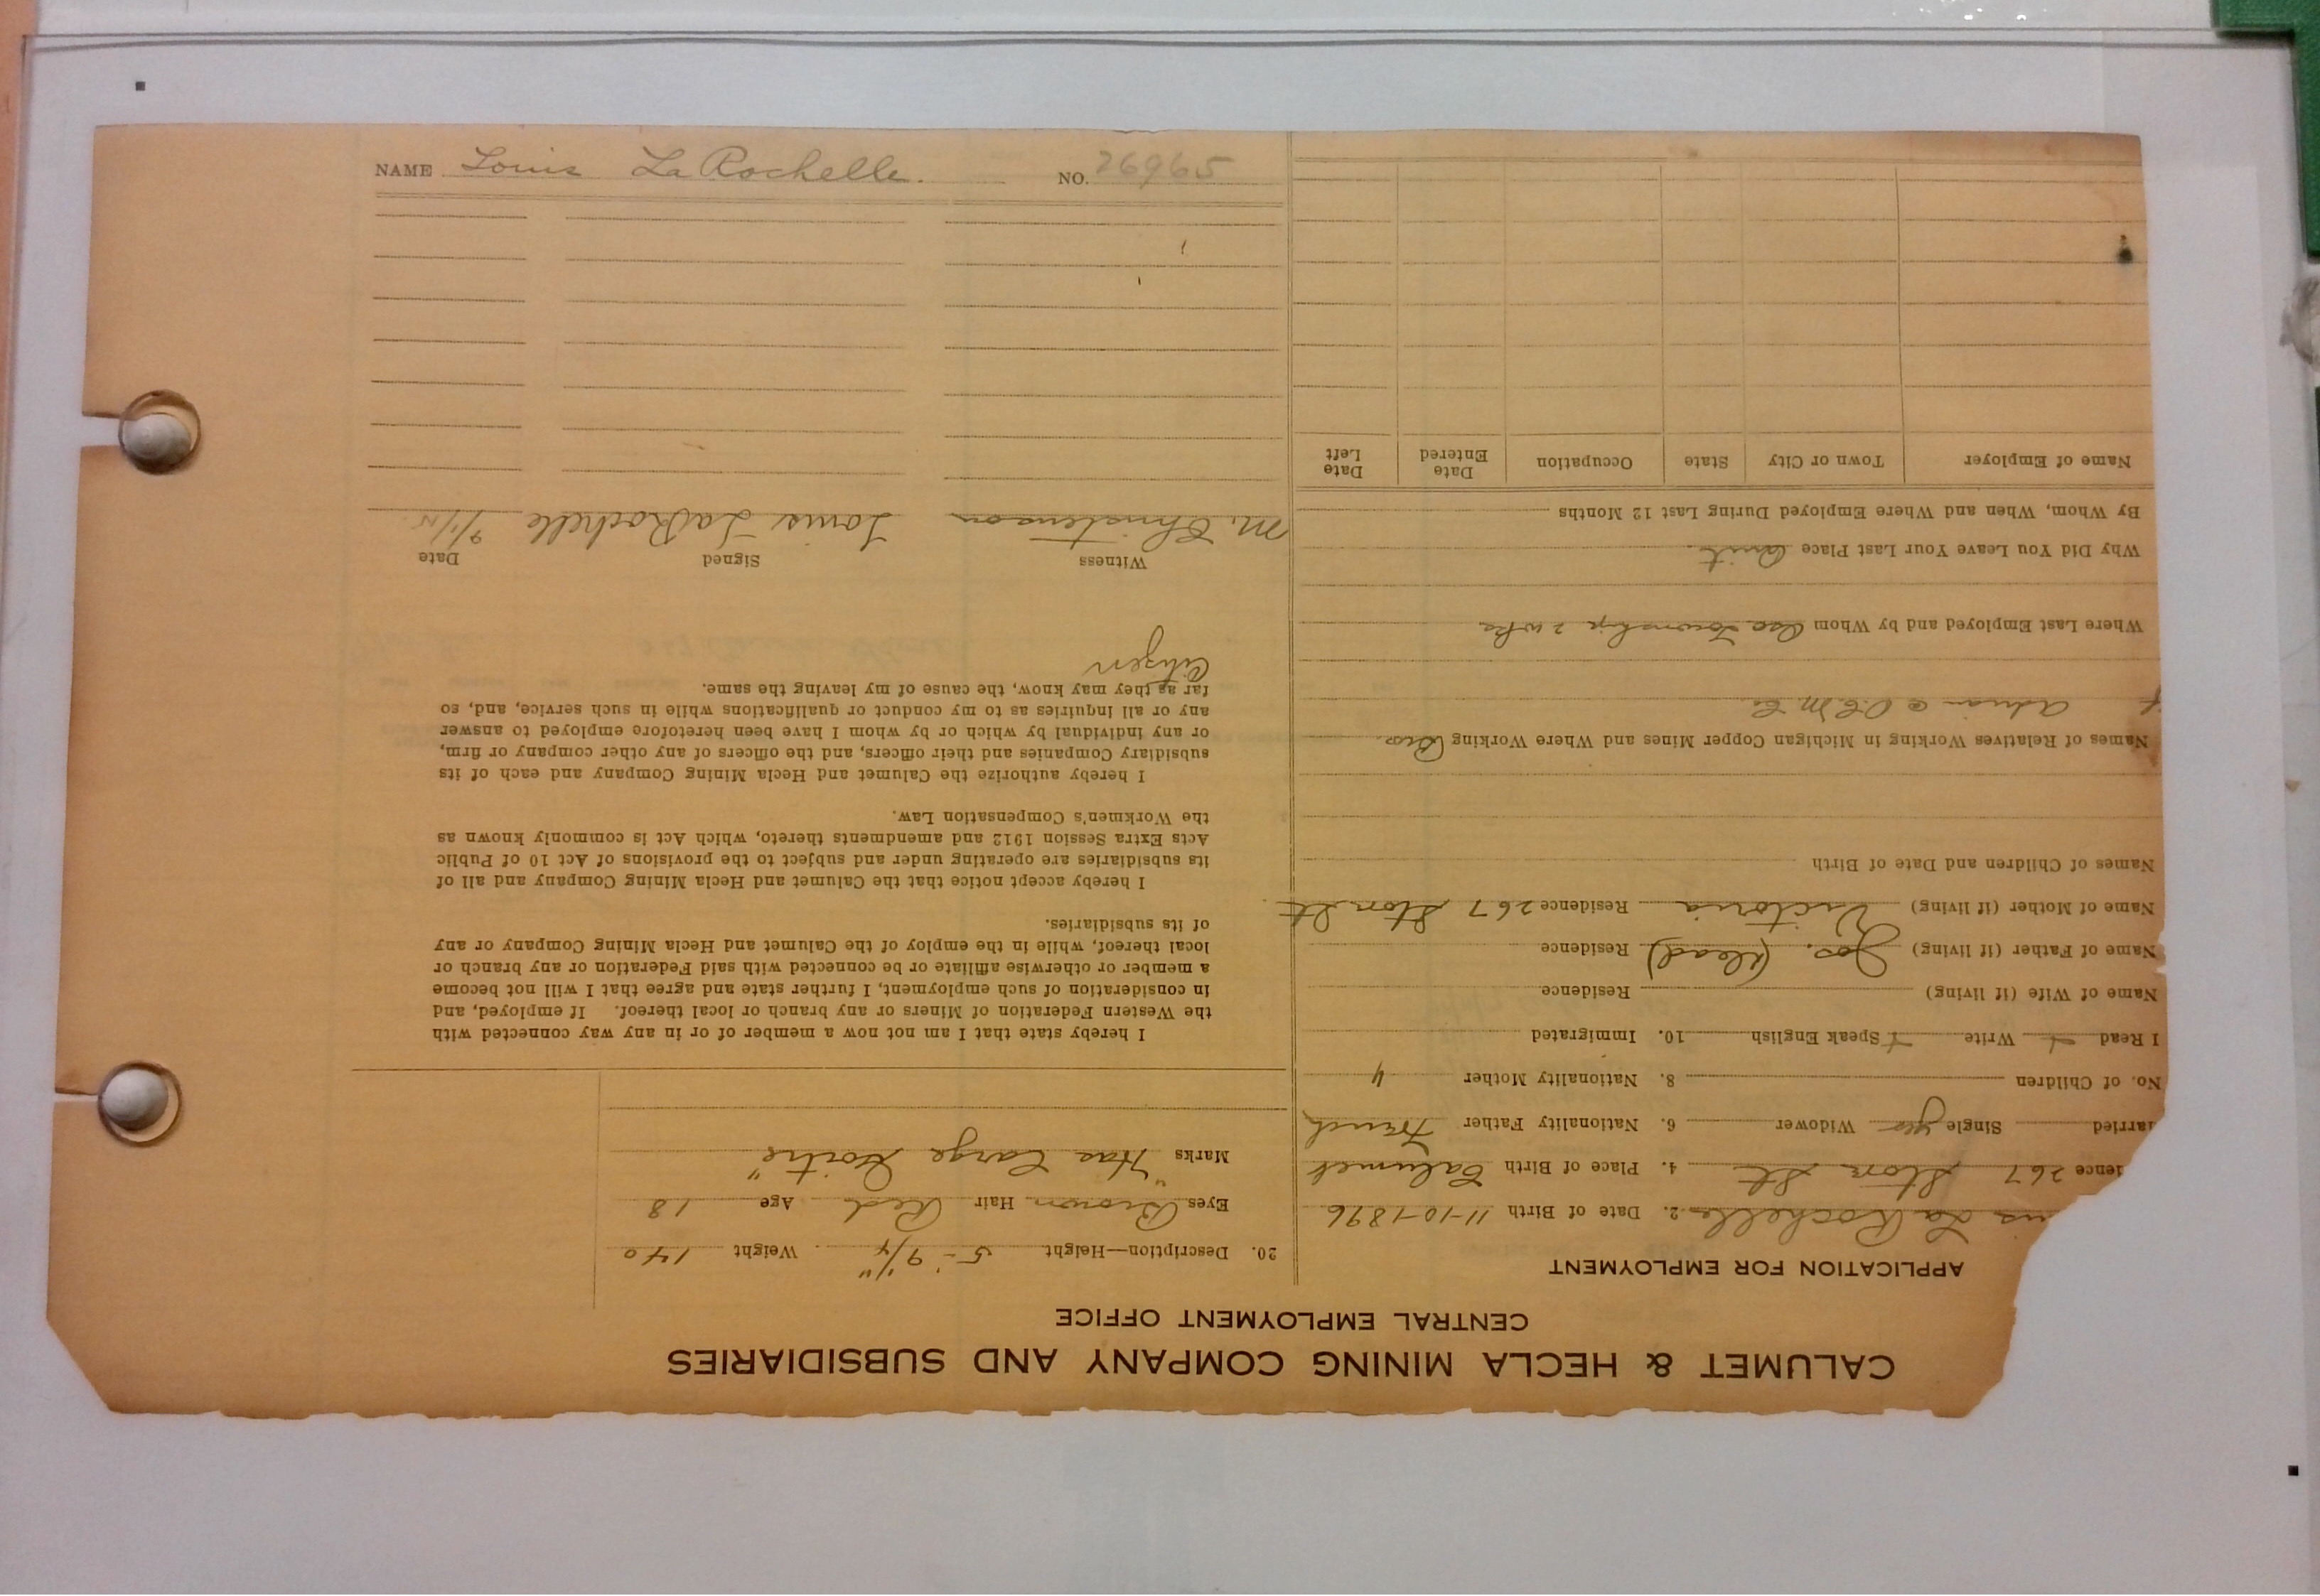 CALUMET & HECLA MINING COMPANY AND SUBSIDIARIES
CENTRAL EMPLOYMENT OFFICE
APPLICATION FOR EMPLOYMENT
La Rochelle 2. Date of Birth 11-10-1896
267 Ston St 4. Place of Birth Calumet
Single yes Widower 6. Nationality Father French
No. of Children 8. Nationality Mother "
I Read Write Speak English 10. Immigrated
Name of Wife (if living) Residence
Name of Father (if living) Jos. (dead) Residence
Name of Mother (if living) Victoria Residence 267 Ston St.
Names of Children and Date of Birth
Names of Relatives Working in Michigan Copper Mines and Where Working Bro.
Where Last Employed and by Whom Township 2 wks
Why Did You Leave Your Last Place Quit.
By Whom, When and Where Employed During Last 12 Months
Name of Employer Town or City State Occupation Date Entered Date Left
20. Description—Height 5-9 1/4" Weight 140
Eyes Brown Hair Red Age 18
Marks "Has Large Goitre"
I hereby state that I am not now a member of or in any way connected with
the Western Federation of Miners or any branch or local thereof. If employed, and
in consideration of such employment, I further state and agree that I will not become
a member or otherwise affiliate or be connected with said Federation or any branch or
local thereof, while in the employ of the Calumet and Hecla Mining Company or any
of its subsidiaries.
I hereby accept notice that the Calumet and Hecla Mining Company and all of
its subsidiaries are operating under and subject to the provisions of Act 10 of Public
Acts Extra Session 1912 and amendments thereto, which Act is commonly known as
the Workmen's Compensation Law.
I hereby authorize the Calumet and Hecla Mining Company and each of its
subsidiary Companies and their officers, and the officers of any other company or firm,
or any individual by which or by whom I have been heretofore employed to answer
any or all inquiries as to my conduct or qualifications while in such service, and, so
far as they may know, the cause of my leaving the same.
Citizen
Witness Signed Date
M. Christenson Louis LaRochelle 9/1/15
NAME Louis La Rochelle. NO. 26965